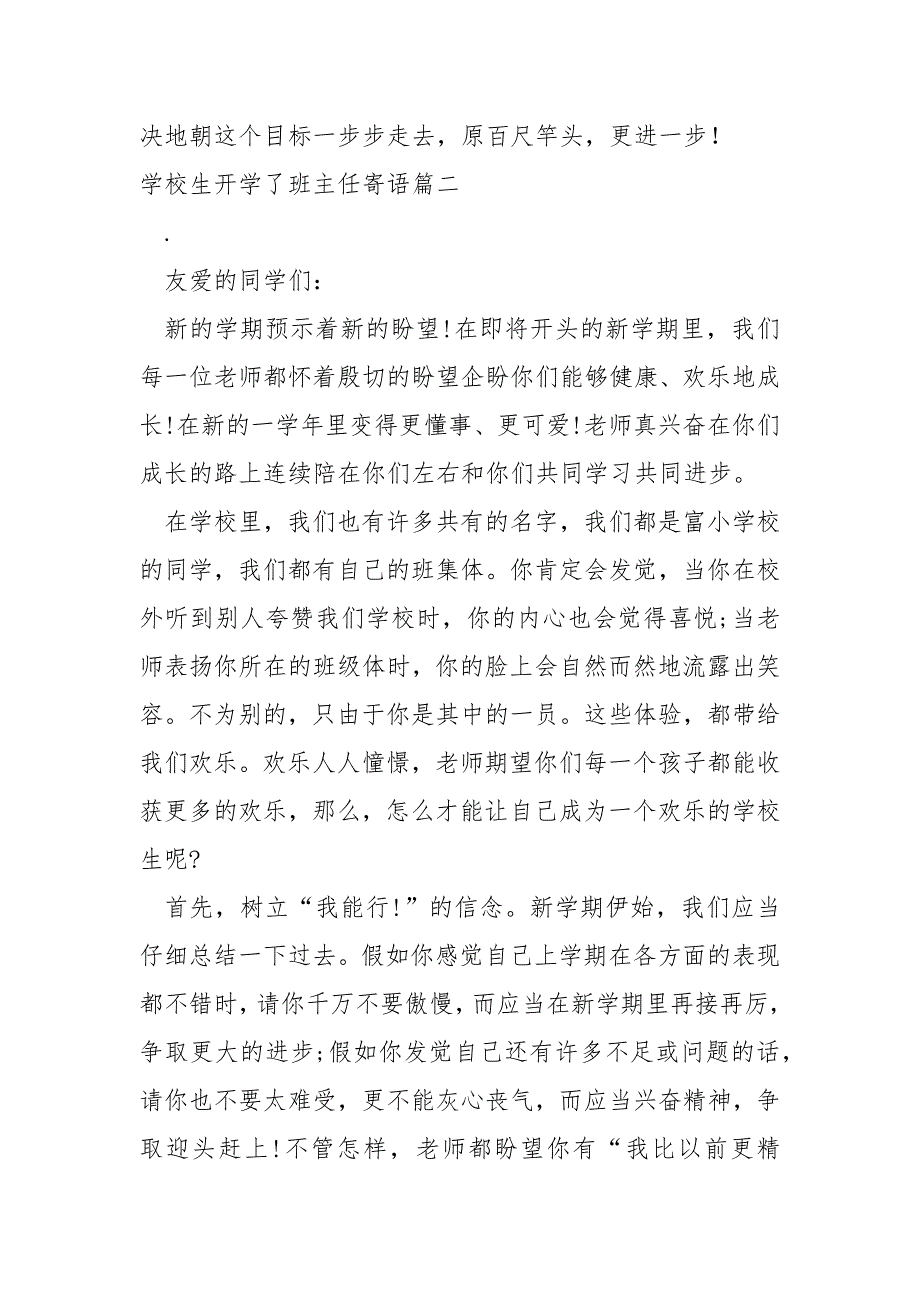 决地朝这个目标一步步走去，原百尺竿头，更进一步！
学校生开学了班主任寄语篇二
.
友爱的同学们：
新的学期预示着新的盼望!在即将开头的新学期里，我们
每一位老师都怀着殷切的盼望企盼你们能够健康、欢乐地成
长!在新的一学年里变得更懂事、更可爱!老师真兴奋在你们
成长的路上连续陪在你们左右和你们共同学习共同进步。
在学校里，我们也有许多共有的名字，我们都是富小学校
的同学，我们都有自己的班集体。你肯定会发觉，当你在校
外听到别人夸赞我们学校时，你的内心也会觉得喜悦;当老
师表扬你所在的班级体时，你的脸上会自然而然地流露出笑
容。不为别的，只由于你是其中的一员。这些体验，都带给
我们欢乐。欢乐人人憧憬，老师期望你们每一个孩子都能收
获更多的欢乐，那么，怎么才能让自己成为一个欢乐的学校
生呢?
首先，树立“我能行!”的信念。新学期伊始，我们应当
仔细总结一下过去。假如你感觉自己上学期在各方面的表现
都不错时，请你千万不要傲慢，而应当在新学期里再接再厉，
争取更大的进步;假如你发觉自己还有许多不足或问题的话，
请你也不要太难受，更不能灰心丧气，而应当兴奋精神，争
取迎头赶上!不管怎样，老师都盼望你有“我比以前更精